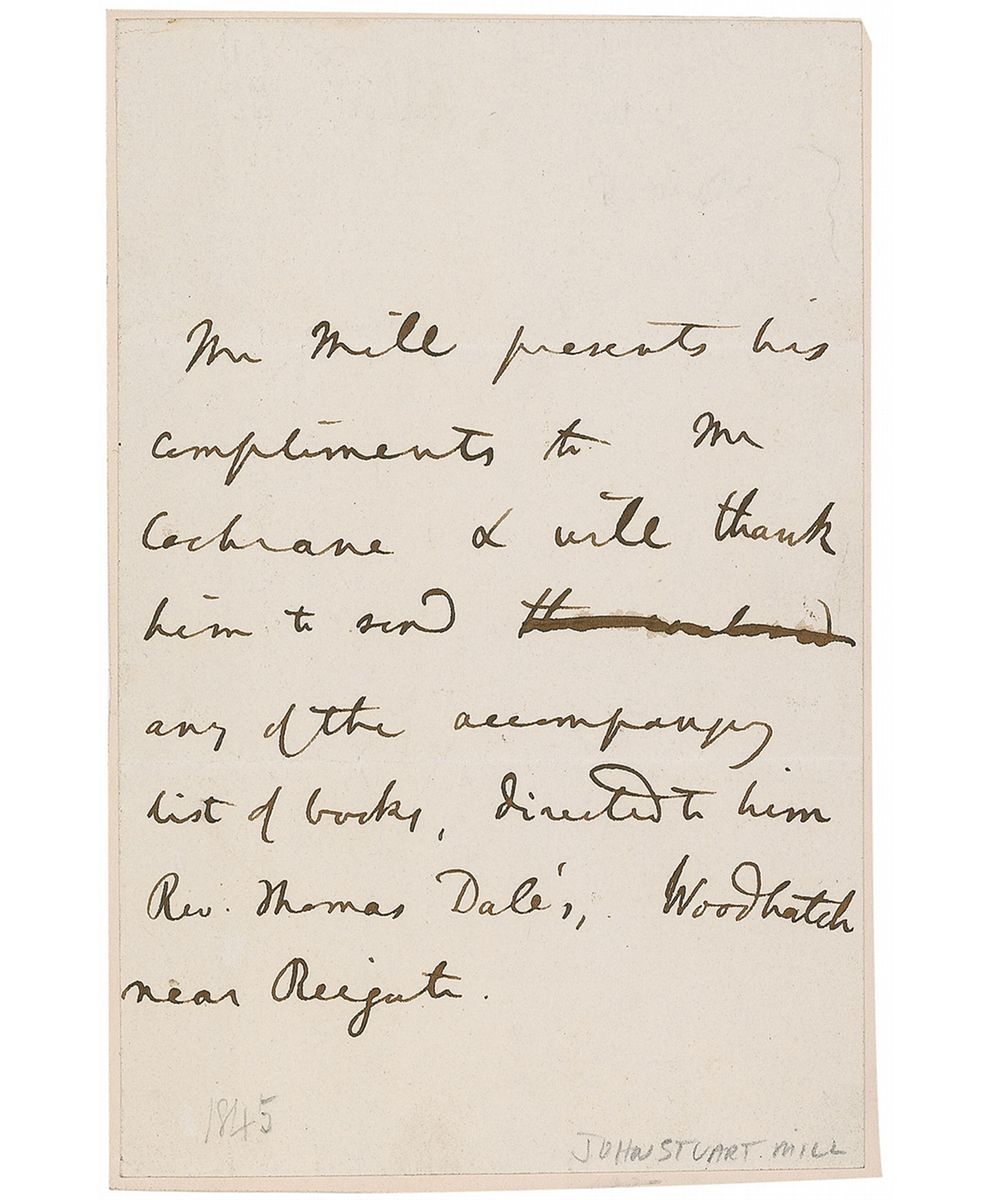 Mr Mill presents his
compliments to Mr
Cochrane & will thank
him to send
any of the accompanyg
list of books, directed to him
Rev. Thomas Dale's, Woodhatch
near Reigate.
1845
JOHN STUART. MILL